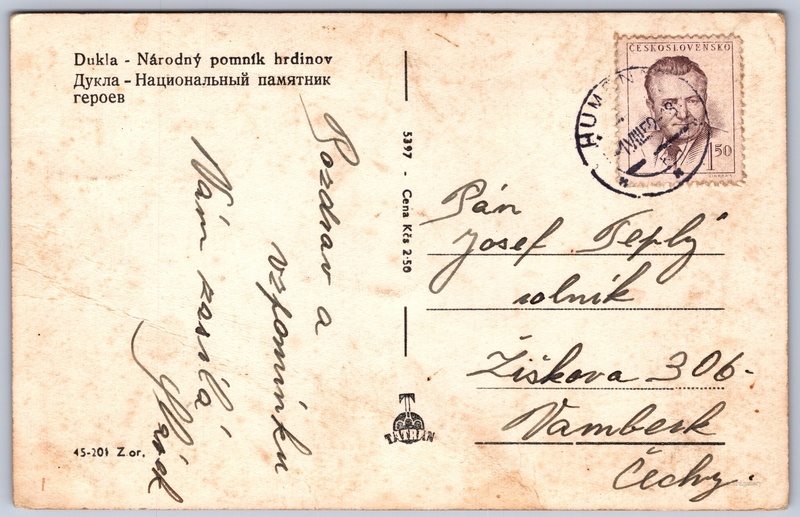 Dukla - Národný pomník hrdinov
Дукла - Национальный памятник
героев
Pozdrav a
vzpomínku
Vám zasílá
5397 - Cena Kčs 2·50
TATRAN
45-201 Z.or.
ČESKOSLOVENSKO
1 50
HUMEN
Pán
Josef Teplý
rolník
Žižkova 306-
Vamberk
Čechy.